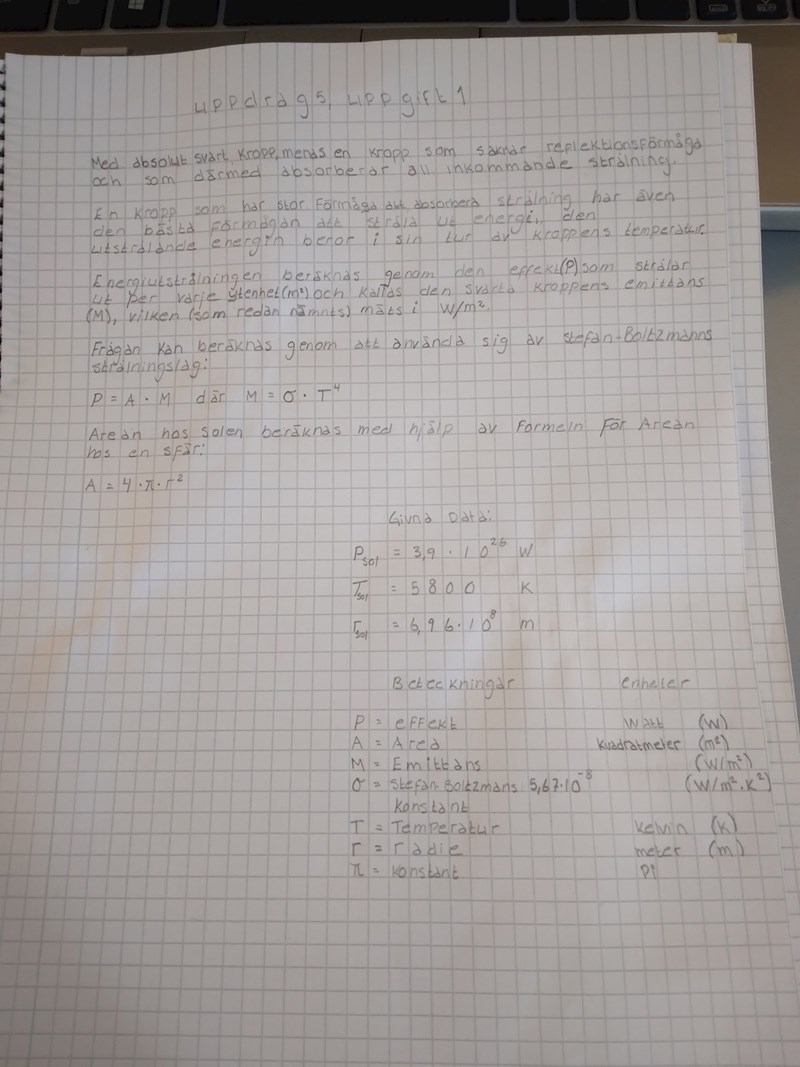 Uppdrag 5, Uppgift 1
Med absolut svart kropp, menas en kropp som saknar reflektionsförmåga
och som därmed absorberar all inkommande strålning.
En kropp som har stor förmåga att absorbera strålning har även
den bästa förmågan att stråla ut energi, den
utstrålande energin beror i sin tur av kroppens temperatur.
Energiutstrålningen beräknas genom den effekt(P) som strålar
ut per varje ytenhet(m²) och kallas den svarta kroppens emittans
(M), vilken (som redan nämnts) mäts i W/m².
Frågan kan beräknas genom att använda sig av Stefan-Boltzmanns
strålningslag:
P = A · M där M = σ · T⁴
Arean hos solen beräknas med hjälp av Formeln För Arean
hos en sfär:
A = 4 · π · r²
Givna Data:
Psol = 3,9 · 10²⁶ W
Tsol = 5800 K
rsol = 6,96 · 10⁸ m
Beteckningar Enheter
P = effekt Watt (W)
A = Area Kvadratmeter (m²)
M = Emittans (W/m²)
σ = Stefan-Boltzmans 5,67·10⁻⁸ (W/m²·K²)
konstant
T = Temperatur Kelvin (K)
r = radie meter (m)
π = konstant Pi